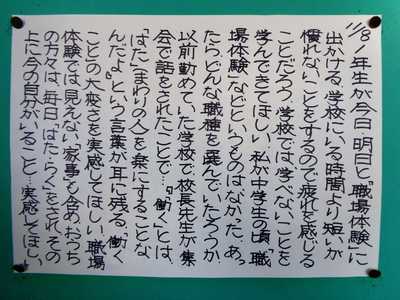 11/8 1年生が今日明日と『職場体験』に
出かける。学校にいる時間より短いが
慣れないことをするので疲れを感じる
ことだろう。学校では学べないことを
学んできてほしい。私が中学生の頃『職
場体験』などというものはなかった。あっ
たらどんな職種を選んでいたろうか。
以前勤めていた学校で校長先生が集
会で話をされたことで…『働く』とは、
「はた」(まわりの人)を楽にすることな
んだよ。という言葉が耳に残る。「働く
こと」の大変さを実感してほしい。職場
体験では、見えない「家事」も含め、おうち
の方々は、毎日「はた・らく」をされ、その
上に今の自分がいること…実感してほしい。